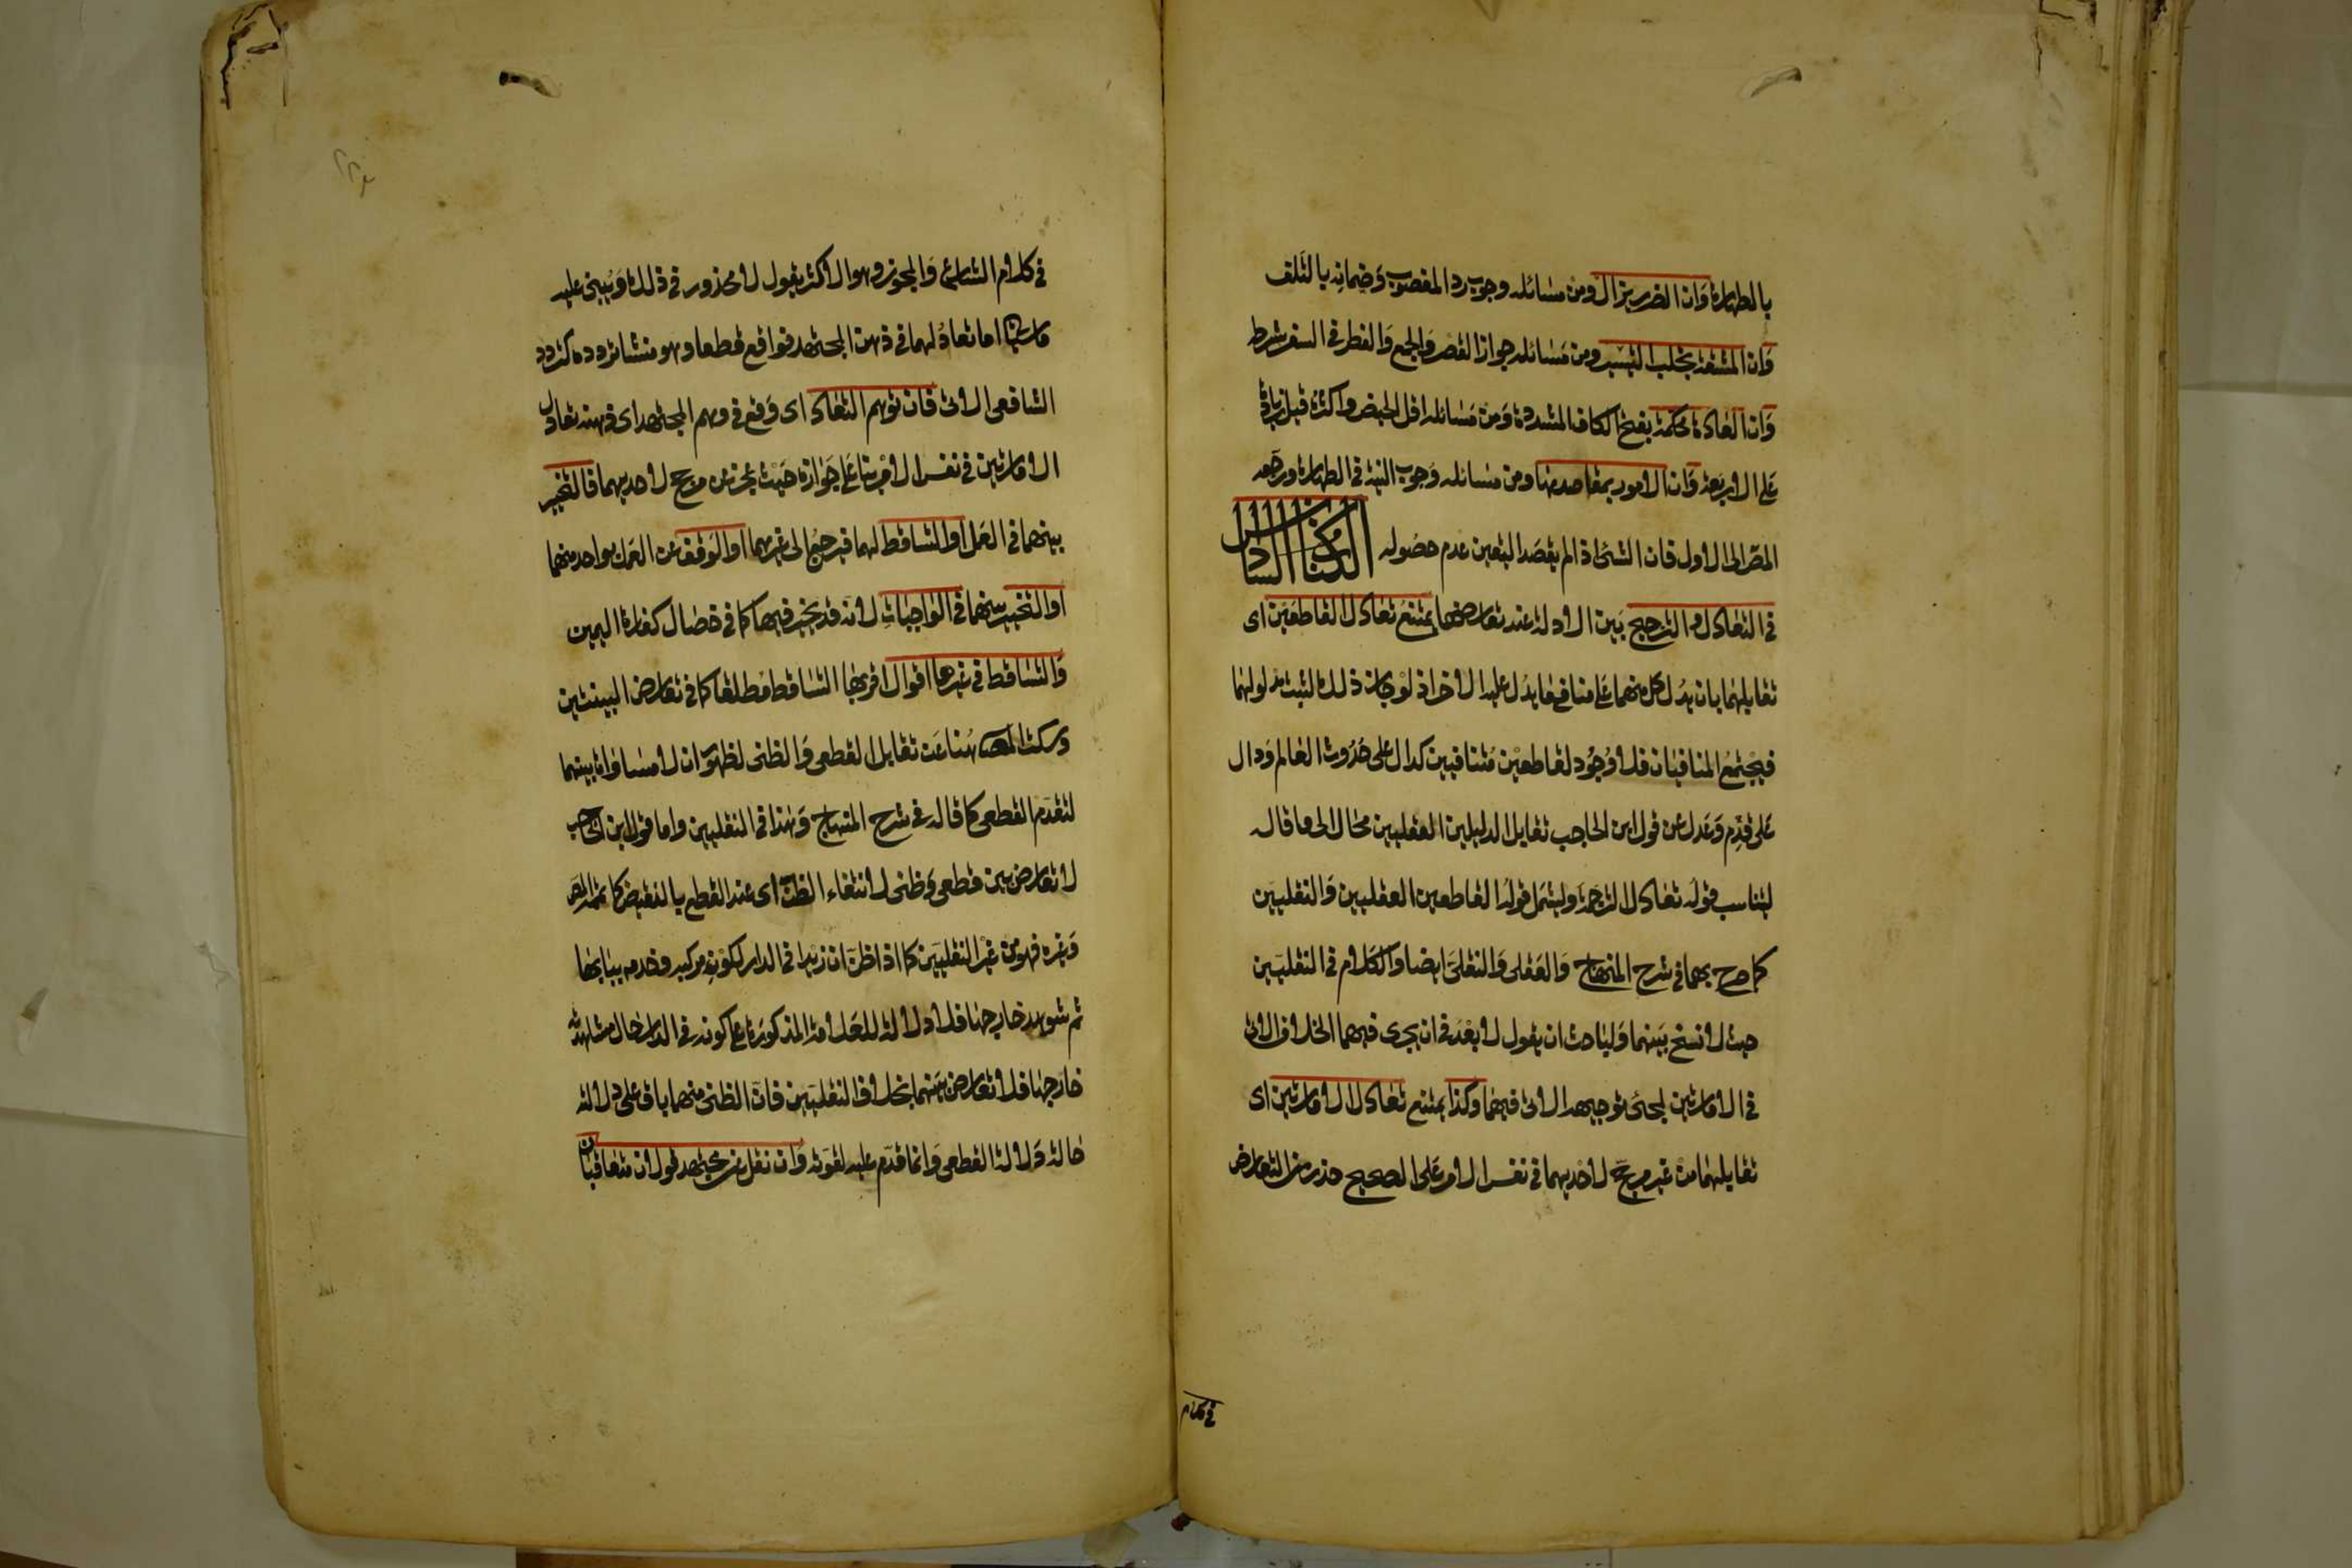 بالطهارة وان الضرر يزال ومن مسائله وجوب رد المغصوب وضمانه بالتلف
وان المشقة تجلب التيسير ومن مسائله جواز القصر والجمع والفطر في السفر بشرطه
وان العادة محكمة بفتح الكاف المشددة ومن مسائله اقل الحيض واكثره قيل زيادة
على الاربعة وان الامور بمقاصدها ومن مسائله وجوب النية في الطهارة ورجعه
المص الى الاول فان الشئ اذا لم يقصد اليقين عدم حصوله الكتاب السادس
في التعادل والترجيح بين الادلة عند تعارضها يمتنع تعادل القاطعين اى
تقابلهما بان يدل كل منهما على منافى ما يدل عليه الاخر اذ لو جاز ذلك لثبت مدلولهما
فيجتمع المنافيان فلا وجود لقاطعين متنافيين كدال على حدوث العالم ودال
على قدم وعدل عن قول ابن الحاجب تقابل الدليلين العقليين محال الى ما قاله
ليناسب قوله تعادل الترجمة وليشمل قوله القاطعين العقليين والنقليين
كما صرح بهما في شرح المنهاج والعقلى والنقلى ايضا والكلام في النقليين
حيث لا نسخ بينهما ولباحث ان يقول لا بعد في ان يجرى فيهما الخلاف الاتى
في الامارتين لمجئ توجيهه الاتى فيهما وكذا يمتنع تعادل الامارتين اى
تقابلهما من غير مرجح لاحديهما في نفس الامر على الصحيح حذرا من التعارض
في كلام
في كلام الشارع والمجوز وهو الاكثر يقول لا محذور في ذلك ويبنى عليه
ما سيأتى اما تعادلهما في ذهن المجتهد فواقع قطعا وهو منشأ تردده كتردد
الشافعى الاتى فان توهم التعادل اى وقع في وهم المجتهد اى ذهنه تعادل
الامارتين في نفس الامر بناء على جوازه حيث عجز عن مرجح لاحديهما فالتخيير
بينهما في العمل او التساقط لهما فيرجع الى غيرهما او الوقف عن العمل بواحد منهما
او التخيير بينهما في الواجبات لانه قد يخير فيها كما في خصال كفارة اليمين
والتساقط في غيرها اقوال اقربها التساقط مطلقا كما في تعارض البينتين
وسكت المص هنا عن تقابل القطعى والظنى لظهور ان لا مساواة بينهما
لتقدم القطعى كما قاله في شرح المنهاج وهذا في النقليين واما قول ابن الحاجب
لا تعارض بين قطعى وظنى لانتفاء الظن اى عند القطع بالنقيض كما تممه المص
وغيره فهو من غير النقليين كما اذا ظن ان زيدا في الدار لكون مركبه وخدمه ببابها
ثم شوهد خارجها فلا دلالة للعلامة المذكورة على كونه في الدار حال مشاهدته
خارجها فلا تعارض بينهما بخلاف النقليين فان الظنى منهما باق على دلالته
حالة دلالة القطعى وانما قدم عليه لقوته وان نقل عن مجتهد قولان متعاقبان